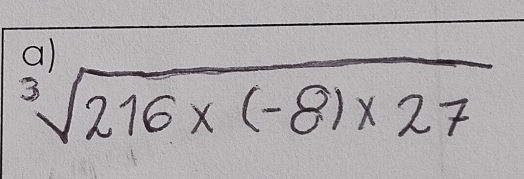 a)
³√216 × (-8) × 27